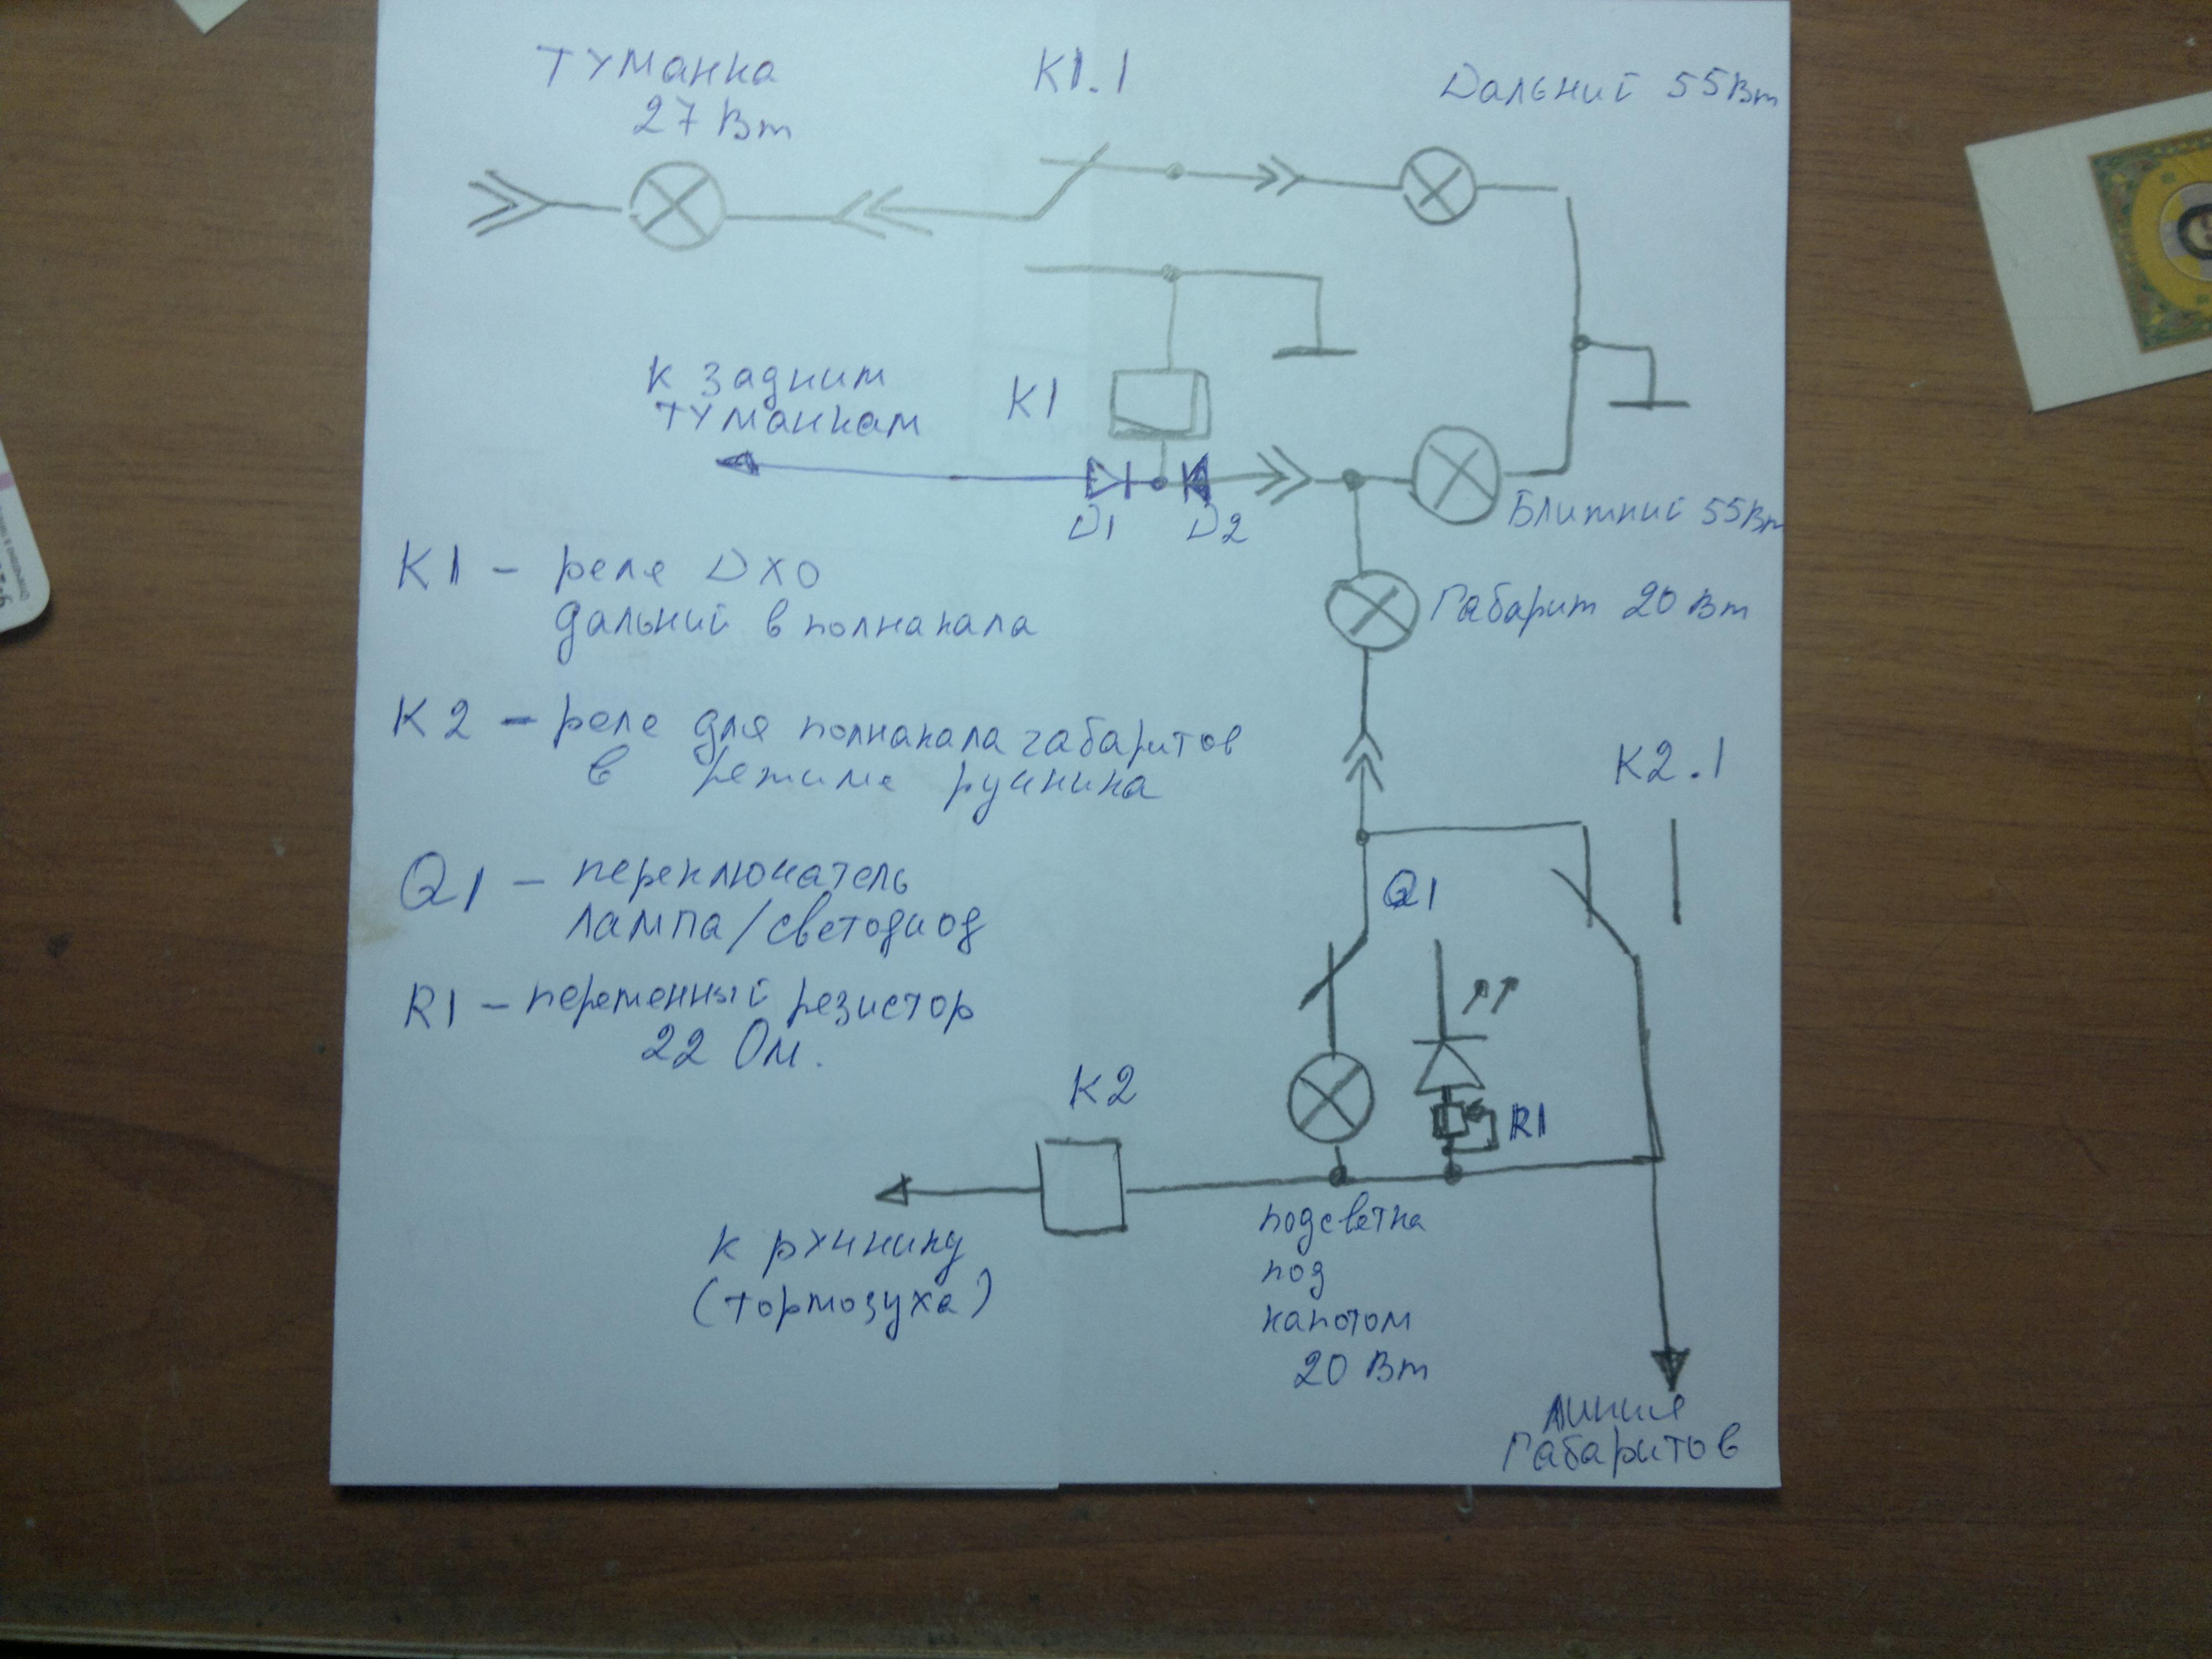 Туманка
27 Вт
К1.1
Дальний 55Вт
к задним
туманкам
К1
D1
D2
Ближний 55Вт
К1 - реле DХО
дальний в полнакала
Габарит 20 Вт
К2 - реле для полнакала габаритов
в режиме ручника
К2.1
Q1 - переключатель
лампа/светодиод
Q1
R1 - переменный резистор
22 Ом.
К2
R1
к ручнику
(тормозуха)
подсветка
под
капотом
20 Вт
линия
Габаритов